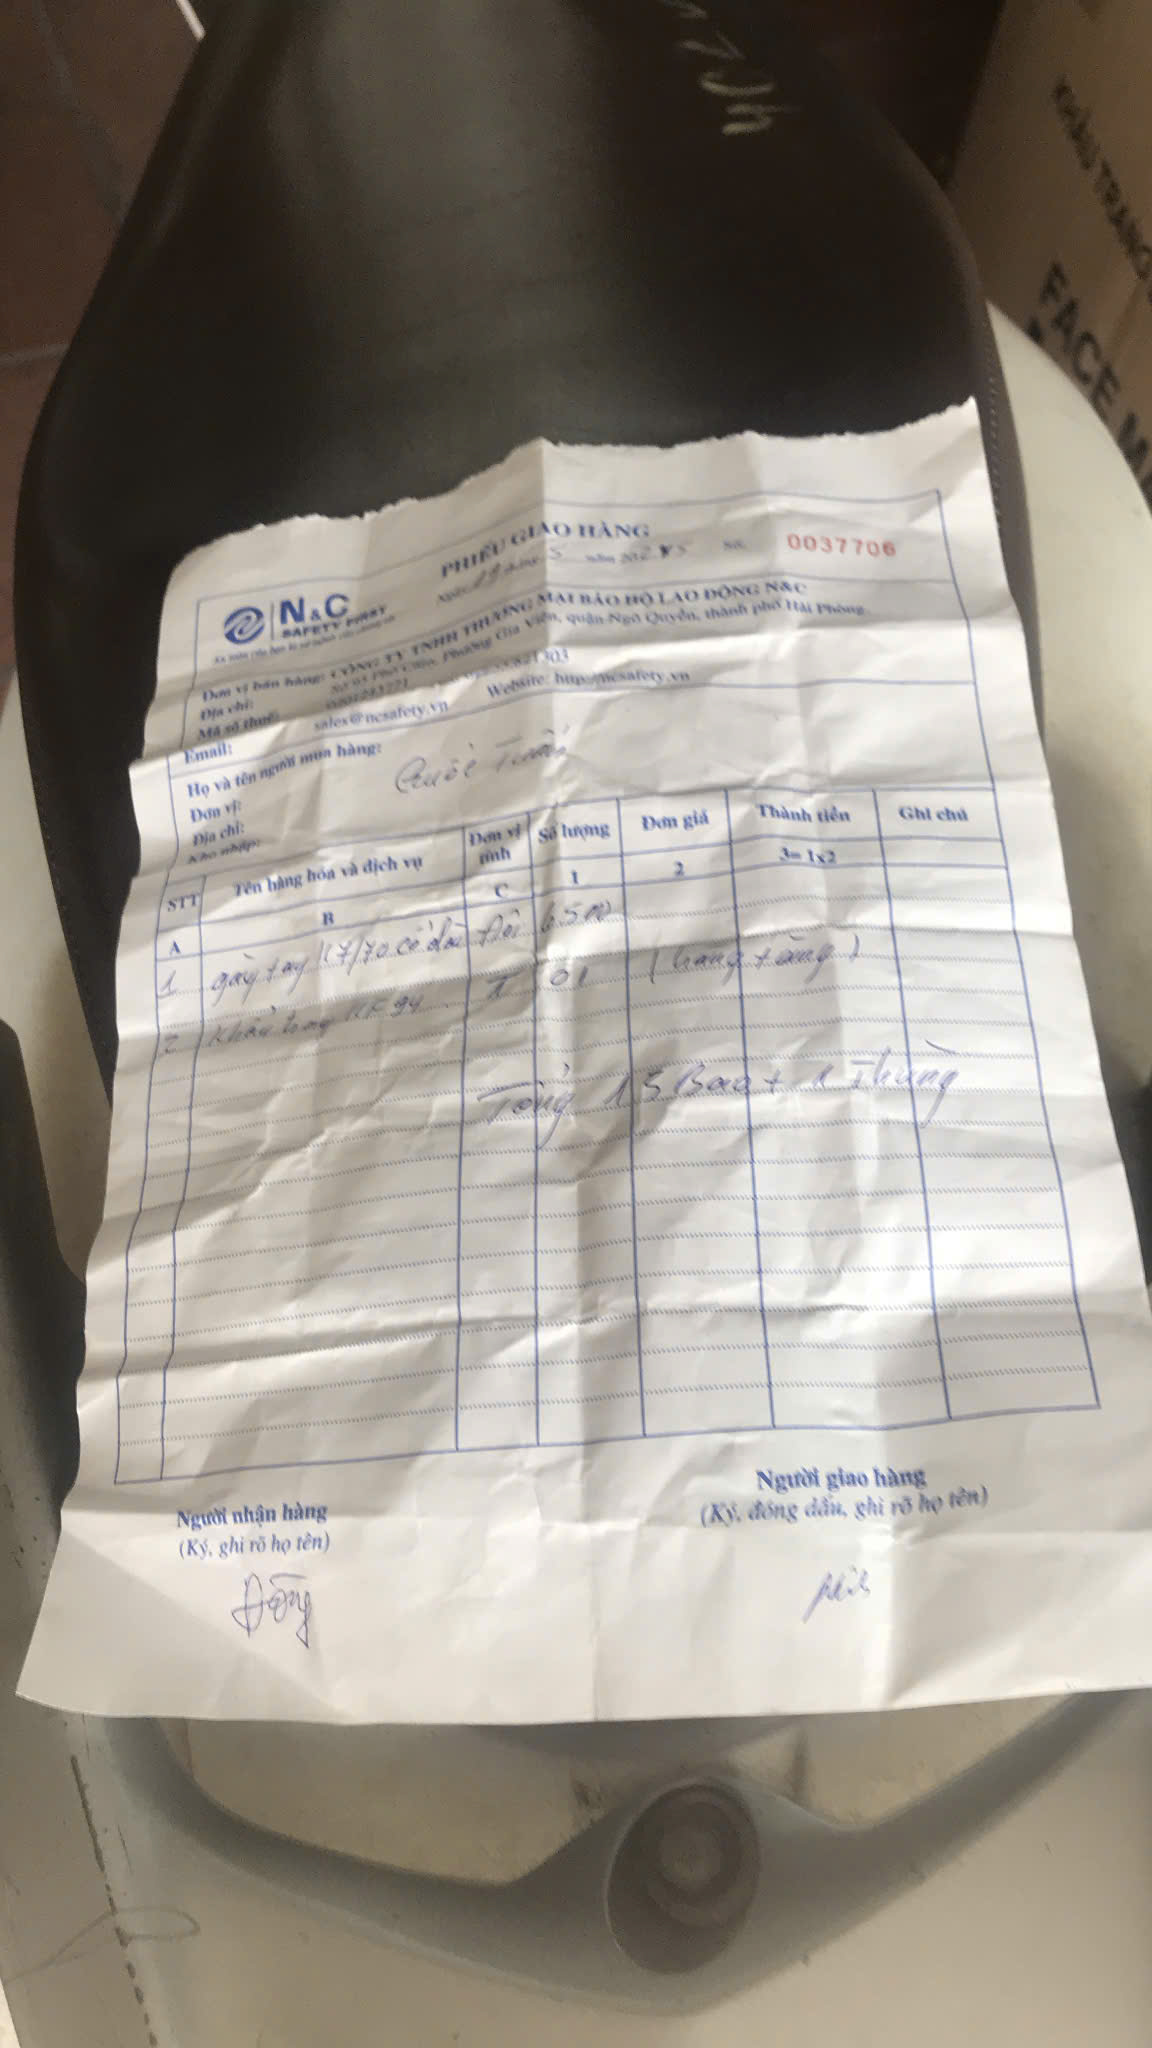 KHẨU TRANG
FACE M
PHIẾU GIAO HÀNG
Ngày 29 tháng 5 năm 2025 Số: 0037706
N&C
SAFETY FIRST
Đơn vị bán hàng: CÔNG TY TNHH THƯƠNG MẠI BẢO HỘ LAO ĐỘNG N&C
Địa chỉ: Phường Gia Viên, quận Ngô Quyền, thành phố Hải Phòng.
Mã số thuế:
Email: sales@ncsafety.vn Website: http://ncsafety.vn
Họ và tên người mua hàng: Quốc Tuấn
Đơn vị:
Địa chỉ:
Kho nhập:
STT Tên hàng hóa và dịch vụ Đơn vị tính Số lượng Đơn giá Thành tiền Ghi chú
A B C 1 2 3= 1x2
1 găng tay K7/70 Đôi 6500
2 Khẩu trang KF94 T 01 (hàng tặng)
Tổng 15 Bao + 1 Thùng
Người nhận hàng
(Ký, ghi rõ họ tên)
Đồng
Người giao hàng
(Ký, đóng dấu, ghi rõ họ tên)